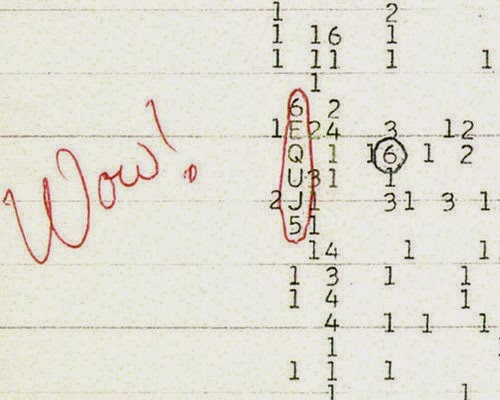 1 2
1 16 1
1 11 1 1
1
6 2
1 E 24 3 12
Wow!
Q 1 16 1 2
U 31 1
2 J 1 31 3 1
5 1
14 1 1
1 3 1 1
1 4 1
4 1 1 1
1
1 1 1
1 1